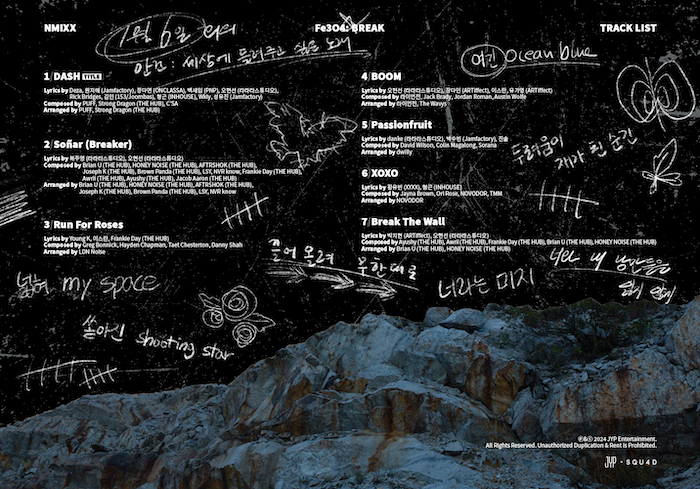 NMIXX
Fe3O4: BREAK
TRACK LIST
1월 6일 회의
안건: 세상에 들려주고 싶은 노래
1/DASH TITLE
Lyrics by Deza, 원지애 (Jamfactory), 문다연 (ONCLASSA), 백새임 (PNP), 오현선 (라라라스튜디오),
Rick Bridges, 김인 (153/Joombas), 형근 (INHOUSE), Wkly, 성유진 (Jamfactory)
Composed by PUFF, Strong Dragon (THE HUB), C'SA
Arranged by PUFF, Strong Dragon (THE HUB)
2/Soñar (Breaker)
Lyrics by 북주영 (라라라스튜디오), 오현선 (라라라스튜디오)
Composed by Brian U (THE HUB), HONEY NOISE (THE HUB), AFTRSHOK (THE HUB),
Joseph K (THE HUB), Brown Panda (THE HUB), LSY, NVR know, Frankie Day (THE HUB)
Awrii (THE HUB), Ayushy (THE HUB), Jacob Aaron (THE HUB)
Arranged by Brian U (THE HUB), HONEY NOISE (THE HUB), AFTSHOK (THE HUB),
Joseph K (THE HUB), Brown Panda (THE HUB), LSY, NVR know
3/Run For Roses
Lyrics by Young K, 이스란, Frankie Day (THE HUB)
Composed by Greg Bonnick, Hayden Chapman, Taet Chesterton, Danny Shah
Arranged by LDN Noise
여긴 Ocean blue
4/BOOM
Lyrics by 오현선 (라라라스튜디오), 문다인 (ARTiffect), 이스란, 유가영 (ARTiffect)
Composed by 라이언전, Jack Brady, Jordan Roman, Austin Wolfe
Arranged by 라이언전, The Wavys
5/Passionfruit
Lyrics by danke (라라라스튜디오), 백수빈 (Jamfactory), 진솔
Composed by David Wilson, Colin Magalong, Sorana
Arranged by dwilly
두려움이
재가 된 순간
6/XOXO
Lyrics by 장유빈 (XXXX), 형근 (INHOUSE)
Composed by Jayna Brown, Ori Rose, NOVODOR, TMM
Arranged by NOVODOR
7/Break The Wall
Lyrics by 박지현 (ARTiffect), 오현선 (라라라스튜디오)
Composed by Ayushy (THE HUB), Awrii (THE HUB), Frankie Day (THE HUB), Brian U (THE HUB), HONEY NOISE (THE HUB)
Arranged by Brian U (THE HUB), HONEY NOISE (THE HUB)
끌어 올려
너와 내 낭만들을
넓어 my space
너라는 미지
쏟아진 shooting star
Ⓟ&ⓒ 2024 JYP Entertainment.
All Rights Reserved. Unauthorized Duplication & Rent is Prohibited.
JYP · SQU4D